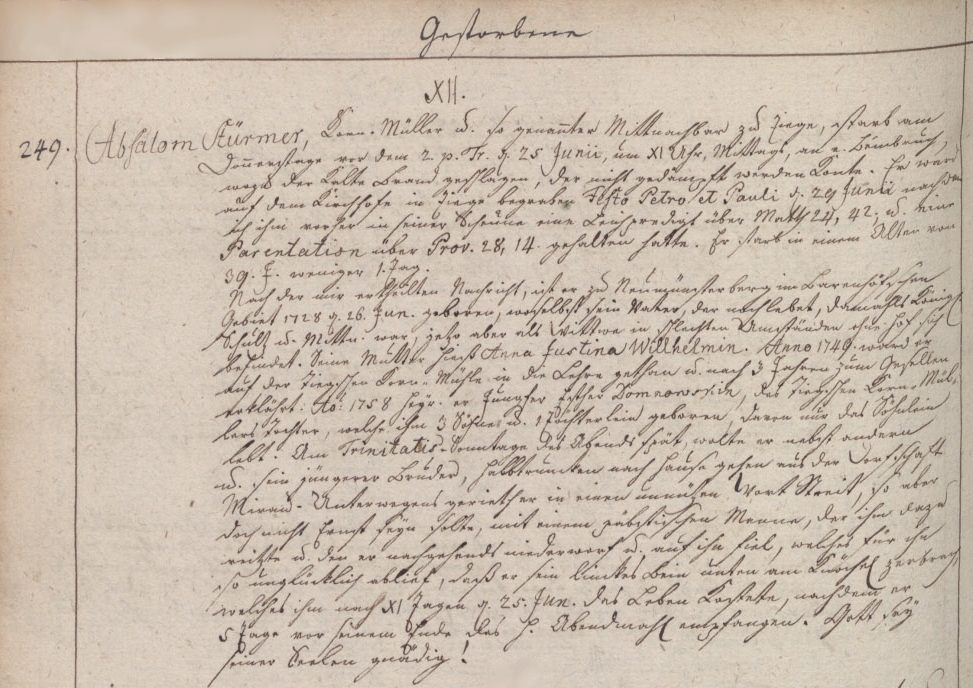 Gestorbene
XII.
249. Absalom Stürmer, Korn-Müller u. so genannter Mittnachbar zu Ziege, starb am
Donnerstage vor dem 2. p. Tr. q. 25 Junii, um XI Uhr, Mittags, an e. Beinbruch,
wozu der Kalte Brand geschlagen, der nicht gedämpft werden konte. Er ward
auf dem Kirchhofe in Ziege begraben Festo Petro et Pauli d. 29 Junii nachdem
ich ihm vorher in seiner Scheune eine Leichpredigt über Matth 24, 42. u. eine
Parentation über Prov. 28, 14. gehalten hatte. Er starb in einem Alter von
39. J. weniger 1. Tag.
Nach der mir ertheilten Nachricht, ist er zu Neumünsterberg im Barenhöfschen
Gebiet 1728 q. 26. Jun. geboren, woselbst sein Vater, der noch lebet, damahls König
Schultz u. Mittn. war, jetzo aber als Wittwer in schlechten Umständen ohne Hof sich
befindet. Seine Mutter hiess Anna Justina Willhelmin. Anno 1749. ward er
auf der Ziegschen Korn-Mühle in die Lehre gethan u. nach 3 Jahren zum Gesellen
erklährt. Ao: 1758 heyr. er Jungfer Esther Domnowskin, des Ziegschen Korn-Mül-
lers Tochter, welche ihm 3 Söhne u. 1 Töchterlein geboren, davon nur das Söhnlein
lebt. Am Trinitatis-Sonntage des Abends spät, wolte er nebst andern
u. sein jüngerer Bruder, halbtruncken nach Hause gehen aus der Dorfschaft
Mirau. Unterwegens gerieth er in einen unnützen Wort Streit, so aber
doch nicht Ernst seyn solte, mit einem päbstischen Manne, der ihn dazu
reitzte u. den er nachgehends niederworf u. auf ihn fiel, welches für ihn
so unglücklich ablief, daß er sein linckes Bein unten am Knöchel zerbrach,
welches ihm nach XI Tagen q. 25. Jun. das Leben kostete, nachdem er
5 Tage vor seinem Ende das H. Abendmahl empfangen. Gott sey
seiner Seelen gnädig!